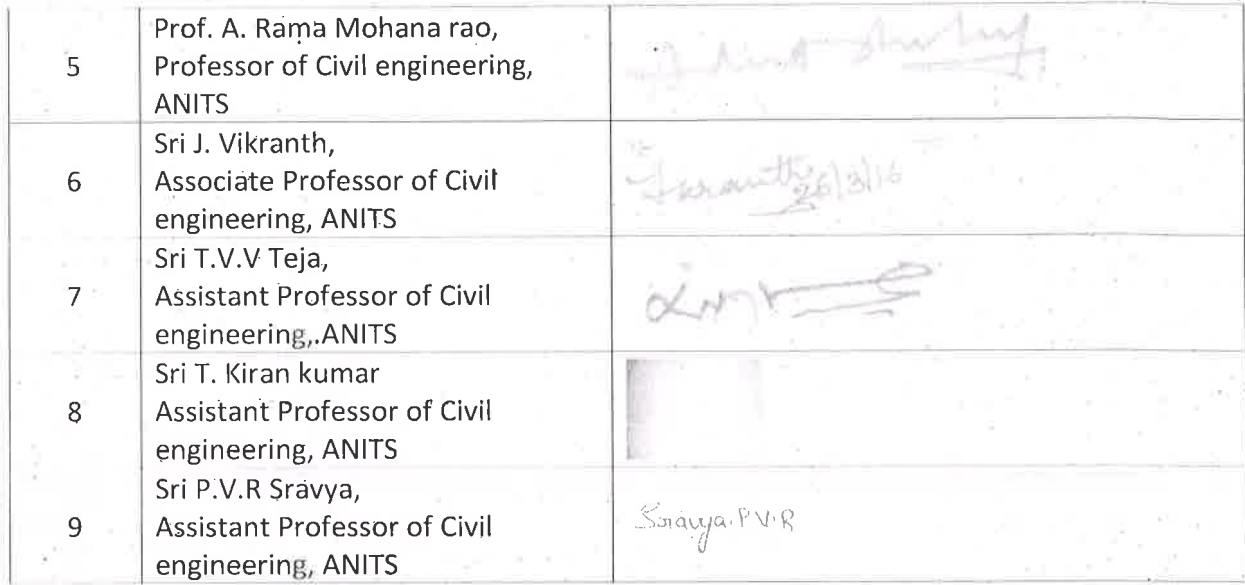 5
Prof. A. Rama Mohana rao,
Professor of Civil engineering,
ANITS
6
Sri J. Vikranth,
Associate Professor of Civil
engineering, ANITS
26/3/16
7
Sri T.V.V Teja,
Assistant Professor of Civil
engineering,.ANITS
8
Sri T. Kiran kumar
Assistant Professor of Civil
engineering, ANITS
9
Sri P.V.R Sravya,
Assistant Professor of Civil
engineering, ANITS
Sravya.P.V.R